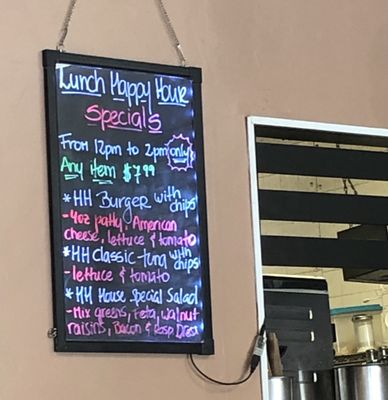 Lunch Happy Hour
Specials
From 12pm to 2pm only
Any item $7.99
*HH Burger with chips
- 4oz patty, American
cheese, lettuce & tomato
*HH Classic tuna with chips
- lettuce & tomato
*HH House Special Salad
- Mix greens, Feta, walnut
raisins, Bacon & Rasp Dress